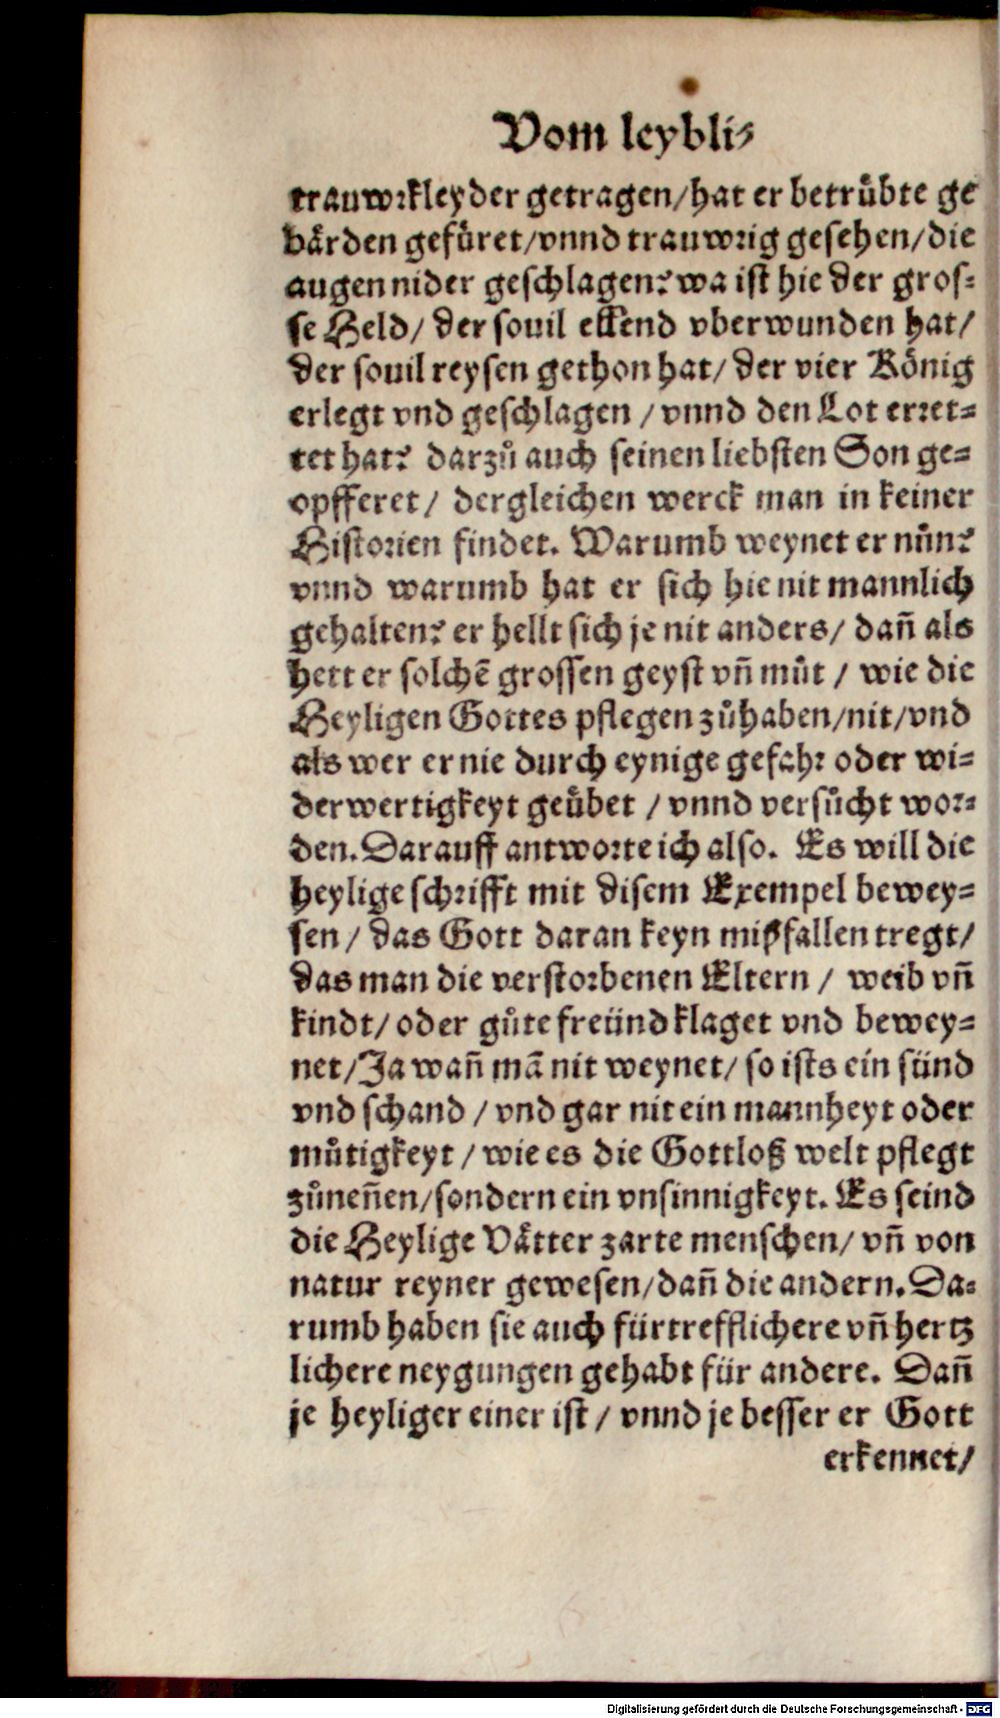 Vom leybli⸗
trauwrkleyder getragen/hat er betruͤbte ge
baͤrden gefuͤret/vnnd trauwrig gesehen/die
augen nider geschlagen? wa ist hie der gros⸗
se Held/ der souil ellend vberwunden hat/
der souil reysen gethon hat/ der vier Koͤnig
erlegt vnd geschlagen / vnnd den Lot erret⸗
tet hat? darzuͦ auch seinen liebsten Son ge⸗
opfferet/ dergleichen werck man in keiner
Historien findet. Warumb weynet er nuͦn?
vnnd warumb hat er sich hie nit mannlich
gehalten? er hellt sich je nit anders/ dañ als
hett er solchẽ grossen geyst vñ muͦt / wie die
Heyligen Gottes pflegen zuͦhaben/nit/vnd
als wer er nie durch eynige gefahr oder wi⸗
derwertigkeyt geuͤbet / vnnd versuͦcht wor⸗
den. Darauff antworte ich also. Es will die
heylige schrifft mit disem Exempel bewey⸗
sen / das Gott daran keyn mißfallen tregt/
das man die verstorbenen Eltern / weib vñ
kindt/ oder guͦte freünd klaget vnd bewey⸗
net/Ja wañ mã nit weynet/ so ists ein sünd
vnd schand / vnd gar nit ein mannheyt oder
muͦtigkeyt / wie es die Gottloß welt pflegt
zuͦneñen/sondern ein vnsinnigkeyt. Es seind
die Heylige Vaͤtter zarte menschen/ vñ von
natur reyner gewesen/dañ die andern. Da⸗
rumb haben sie auch fürtrefflichere vñ hertz
lichere neygungen gehabt für andere. Dañ
je heyliger einer ist / vnnd je besser er Gott
erkennet/
Digitalisierung gefördert durch die Deutsche Forschungsgemeinschaft - DFG